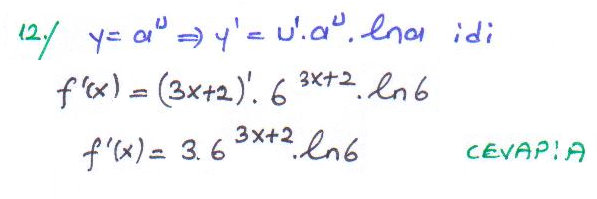 12./ y = a^u ⇒ y' = u'.a^u.lna idi
f'(x) = (3x+2)'. 6^{3x+2}.ln6
f'(x) = 3.6^{3x+2}.ln6 CEVAP: A